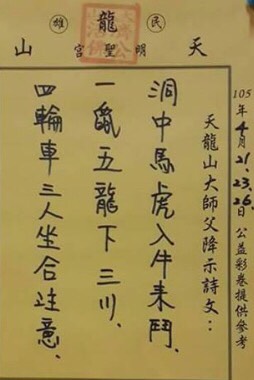 民雄
天龍山
明聖宮
105年4月21.23.26.日 公益彩卷提供參考
天龍山大師父降示詩文：
洞中馬虎入牛來鬥、
一鼠五龍下三川、
四輪車三人坐合注意、